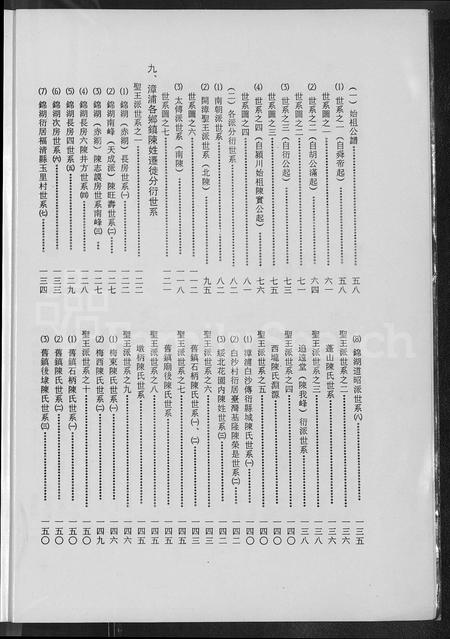 (一) 始祖公譜……五八
(1) 世系之一(自舜帝起)……五八
世系圖之一……六一
(2) 世系之二(自胡公滿起)……六四
世系圖之二……七一
(3) 世系之三(自衍公起)……七三
世系圖之三……七五
(4) 世系之四(自潁川始祖陳實公起)……七六
世系圖之四……八一
(二) 各派分衍世系……八二
(1) 南朝派世系……八二
(2) 開漳聖王派世系(北陳)……九五
世系圖之六……一一七
(3) 太傅派世系(南陳)……一一八
世系圖之七……一二一
九、漳浦各鄉鎮陳姓遷徙分衍世系
聖王派世系之一……一二二
(1) 錦湖(赤湖)長房世系㈠……一二二
(2) 錦湖南峰(天成派)陳旺壽世系㈡……一二七
(3) 錦湖(赤湖)陳志謨房世系南峰㈢……一二七
(4) 錦湖長房六陳井方世系㈣……一二八
(5) 錦湖長房四世系㈤……一二九
(6) 錦湖次房世系㈥……一三三
(7) 錦湖衍居福清縣玉里村世系㈦……一三四
(8) 錦湖道昭派世系㈧……一三五
聖王派世系之二……一三六
蓬山陳氏世系……一三六
聖王派世系之三……一三八
追遠堂(陳我峰)衍派世系……一三八
聖王派世系之四……一四〇
西埕陳氏淵源……一四〇
聖王派世系之五……一四〇
(1) 漳浦白沙傳衍縣城陳氏世系㈠……一四〇
(2) 白沙村衍居臺灣基隆陳榮是世系㈡……一四二
(3) 綏北花園內陳姓世系㈢……一四二
聖王派世系之六……一四三
舊鎮石柄陳氏世系㈠、㈡……一四三
聖王派世系之七……一四五
舊鎮廟後陳氏世系……一四五
聖王派世系之八……一四五
墩柄陳氏世系……一四五
聖王派世系之九……一四六
(1) 梅東陳氏世系㈠……一四六
(2) 梅西陳氏世系㈡……一四九
聖王派世系之十……一五〇
(1) 舊鎮石柄陳氏世系㈠……一五〇
(2) 舊鎮陳氏世系㈡……一五〇
(3) 舊鎮後埭陳氏世系㈢……一五〇